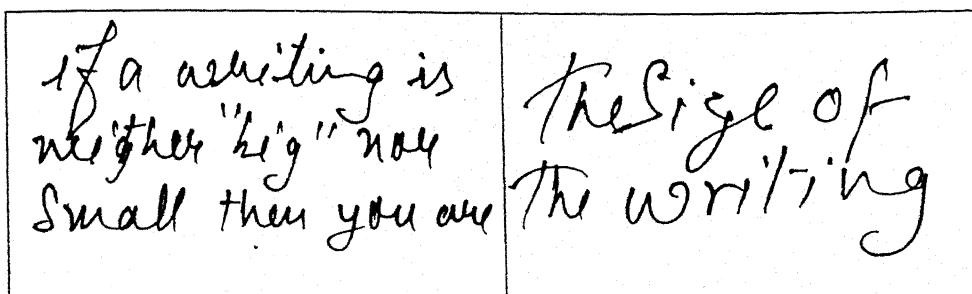 if a writing is
neither "big" nor
Small then you are
The Size of
The writing